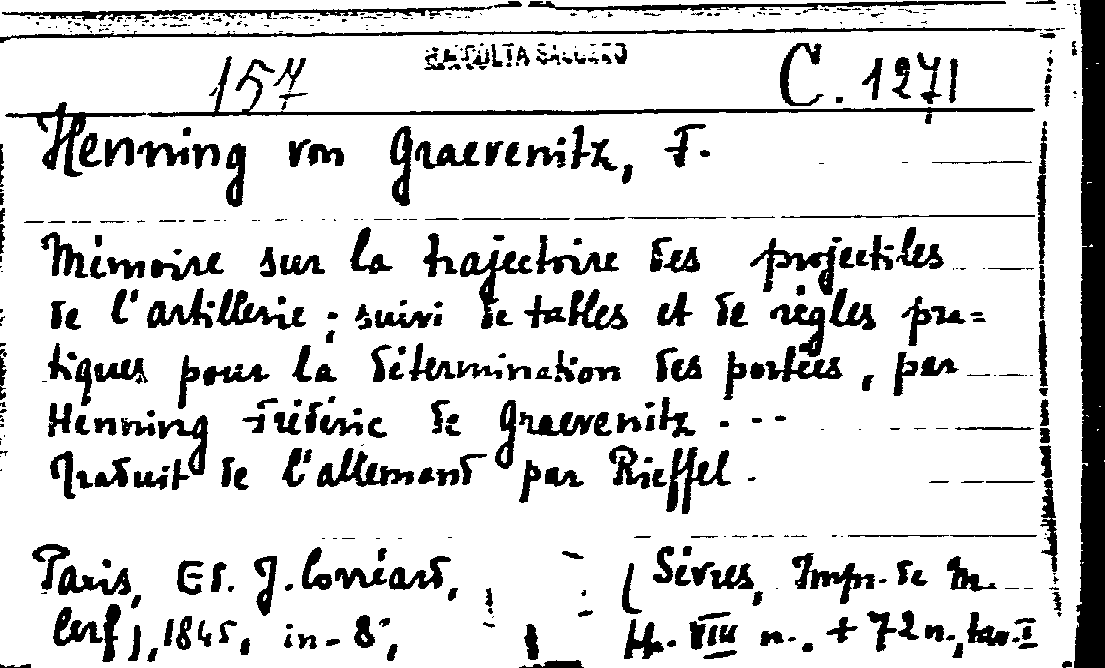 157 RACCOLTA SALUZZO C. 1271
Henning von Graevenitz, F.
Mémoire sur la trajectoire des projectiles
de l'artillerie; suivi de tables et de règles pra=
tiques pour la détermination des portées, par
Henning Frédéric de Graevenitz ---
Traduit de l'allemand par Rieffel.
Paris, Ed. J. Corréard, (Sèvres, Impr. de M.
Cerf), 1845, in-8°, pp. VIII n., + 72 n., tav. I